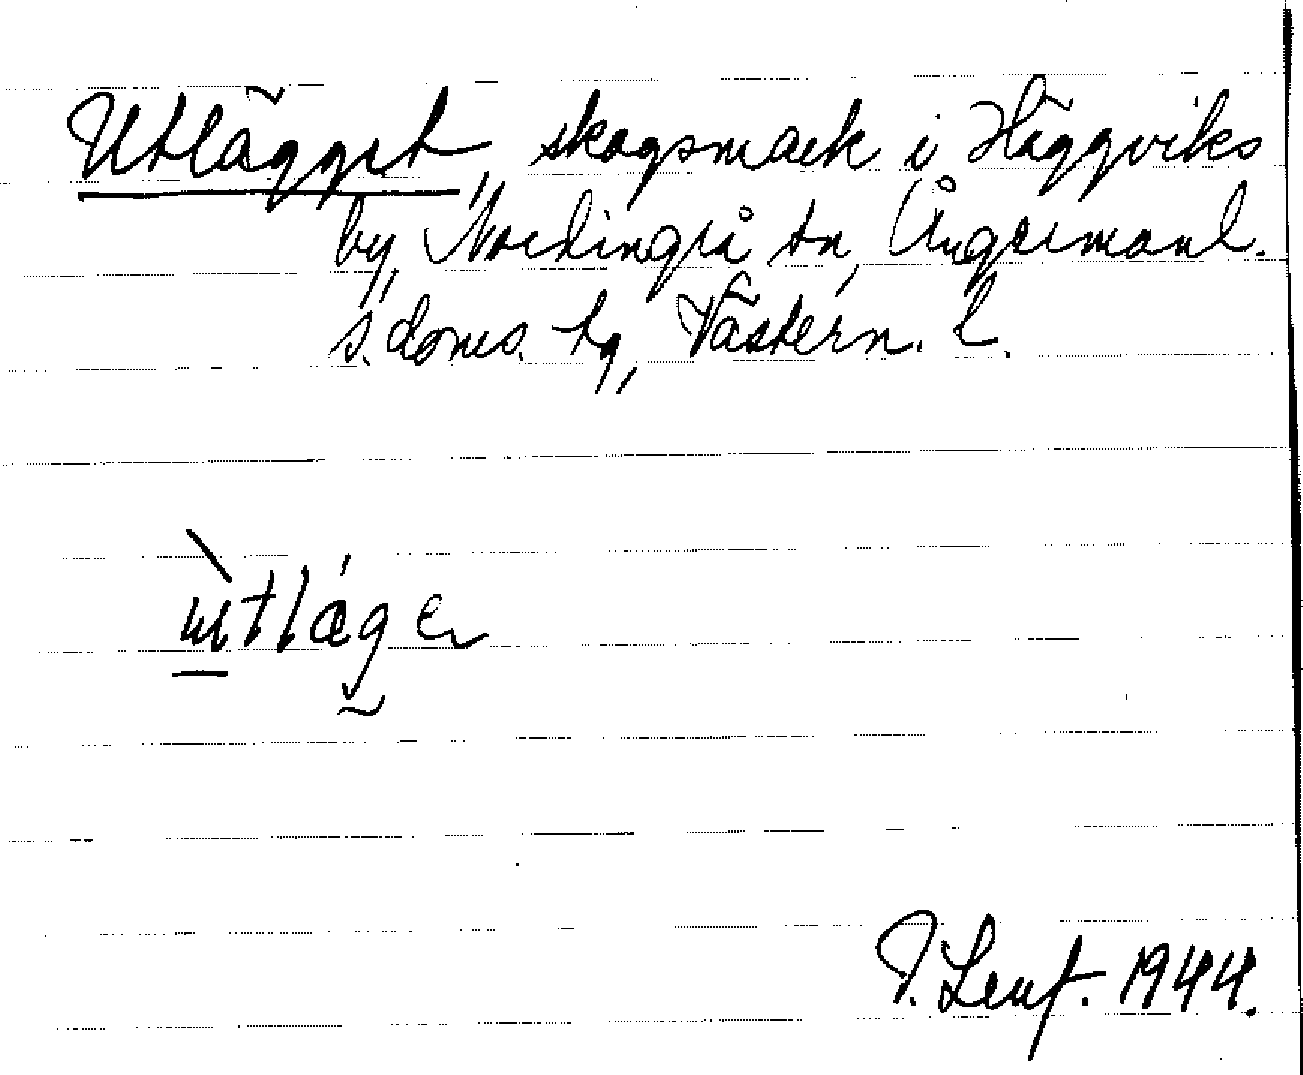 Utlägget, skogsmark i Häggviks
by, Nordingrå tn, Ångermanl.
s. doms. tg, Västern. l.
ùtlág e
1944.